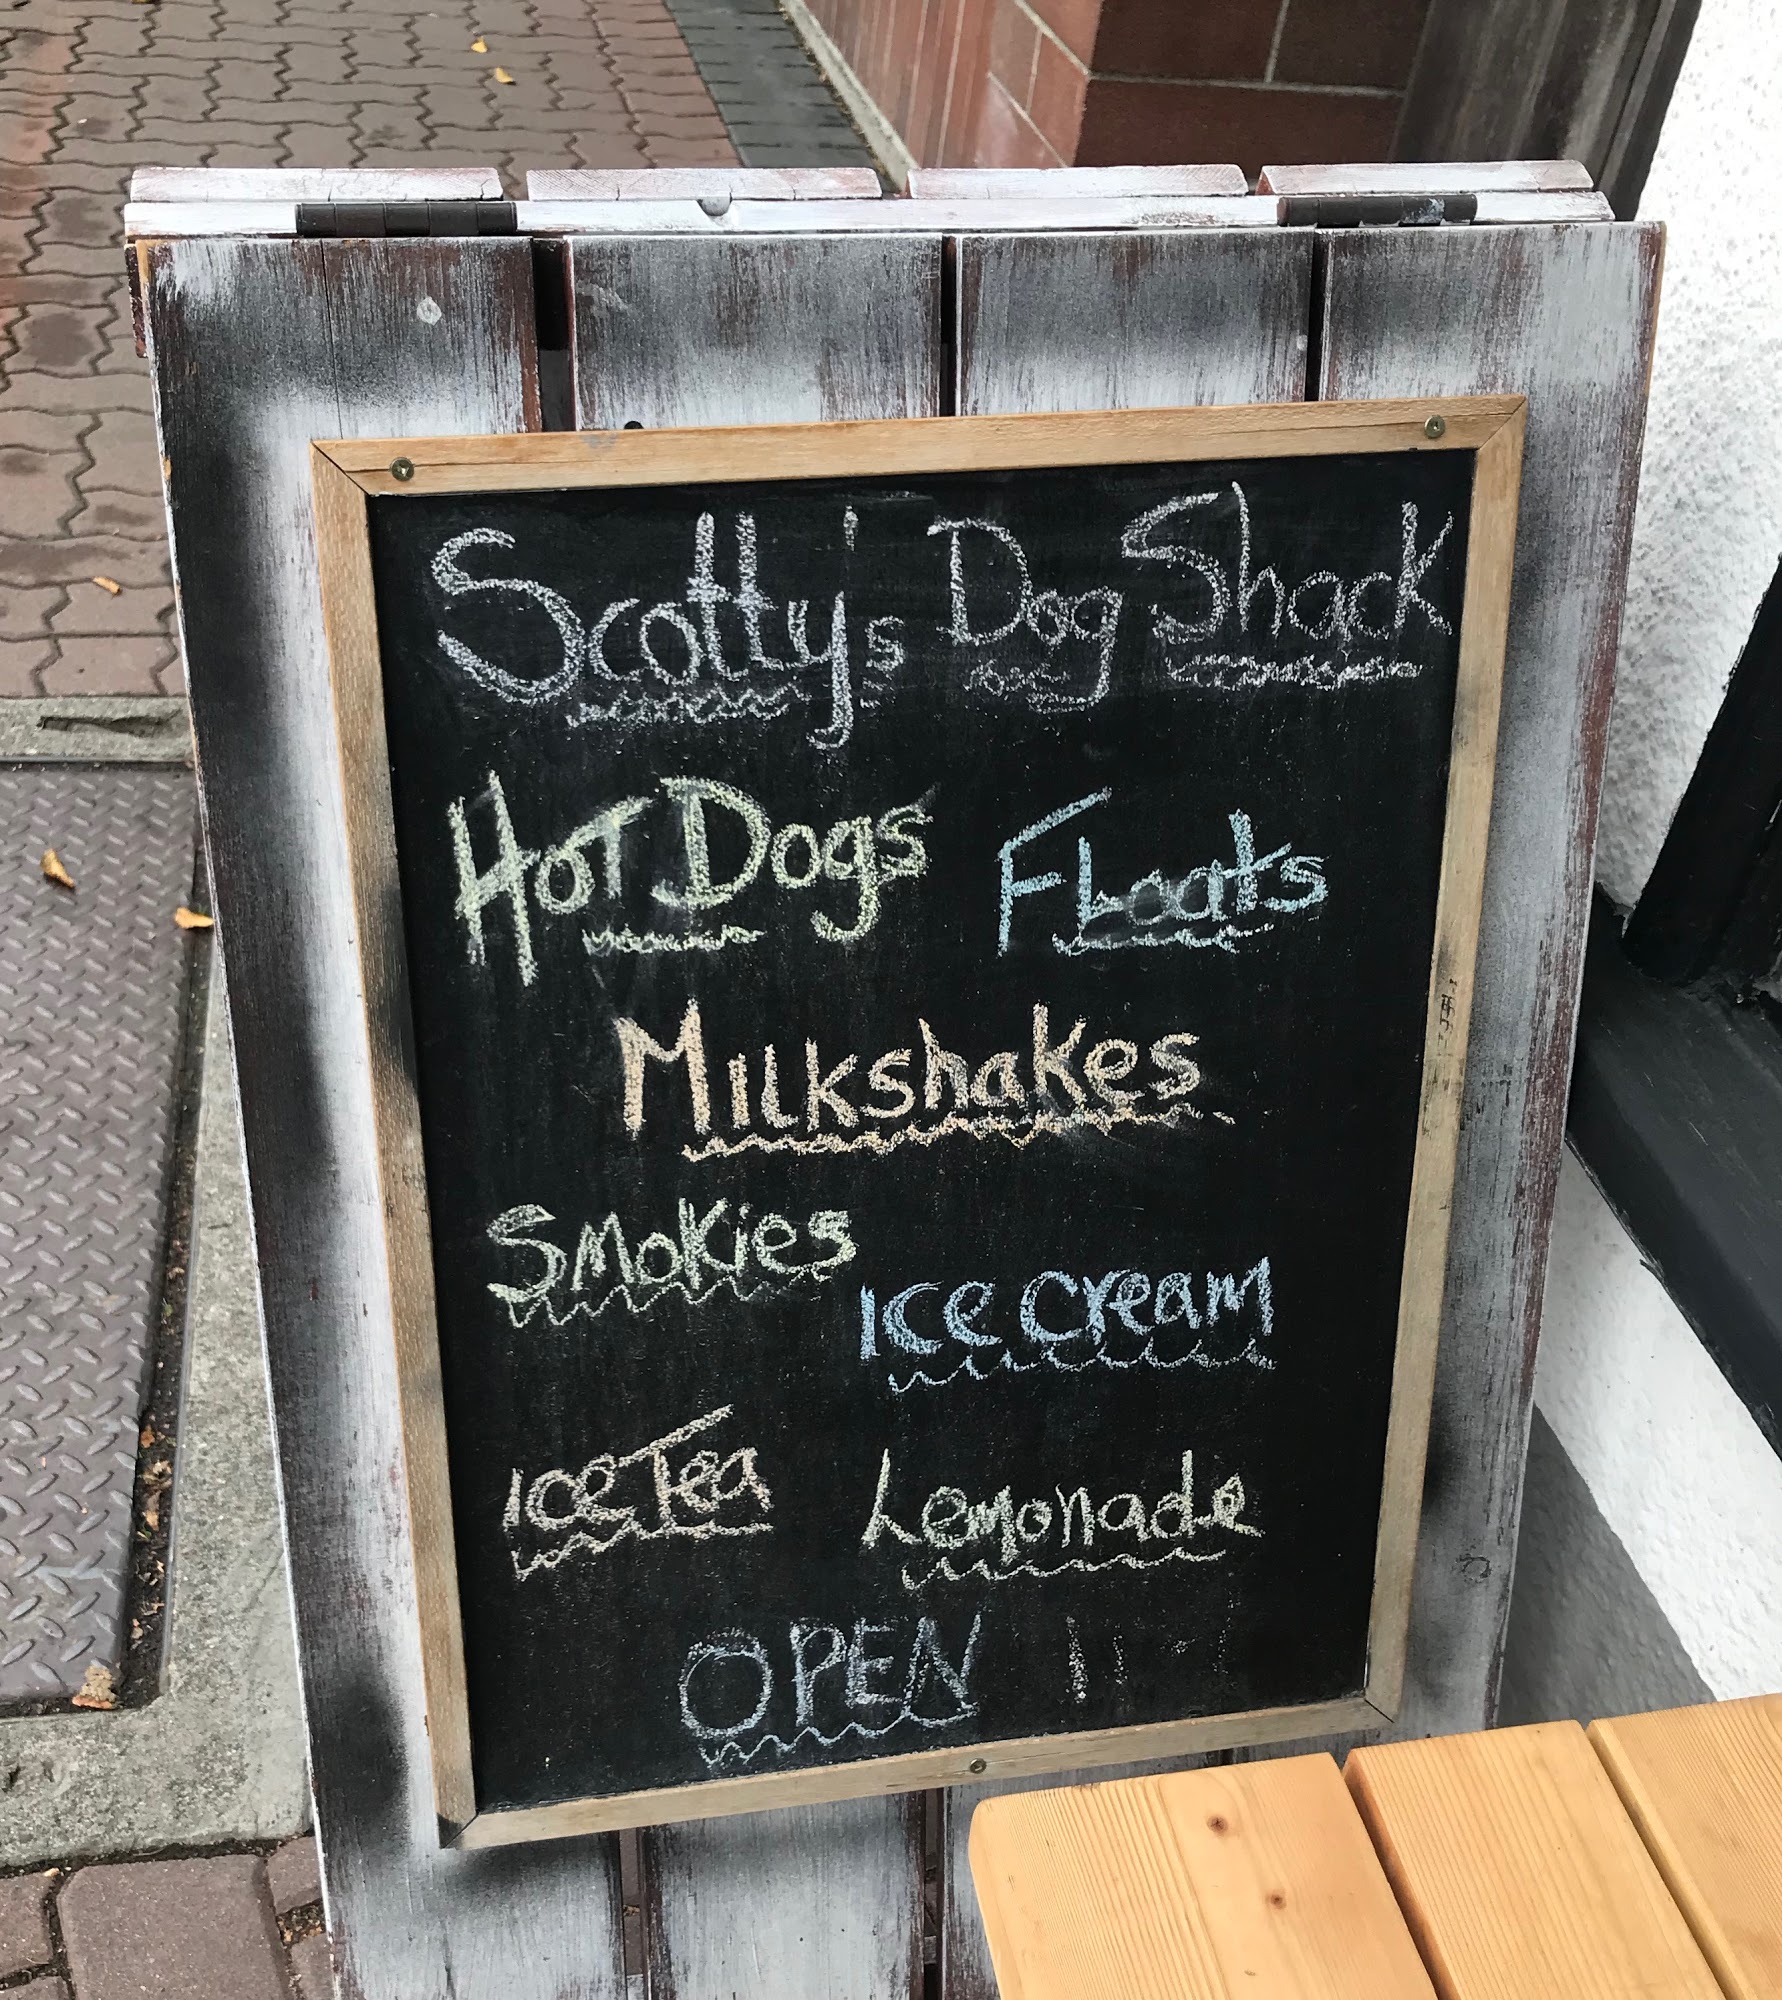 Scotty's Dog Shack
Hot Dogs Floats
Milkshakes
Smokies
Ice Cream
Ice Tea Lemonade
OPEN